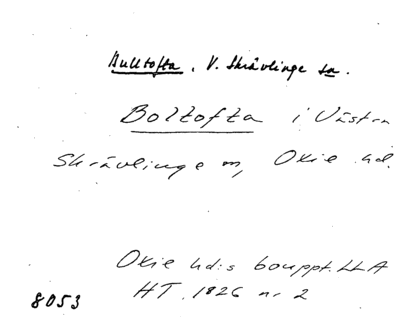 Bulltofta. V. Skrävlinge sn.
Boltofta i Västra
Skrävlinge sn, Oxie hd.
Oxie hd:s bouppt. LLA
8053 HT. 1826 nr 2